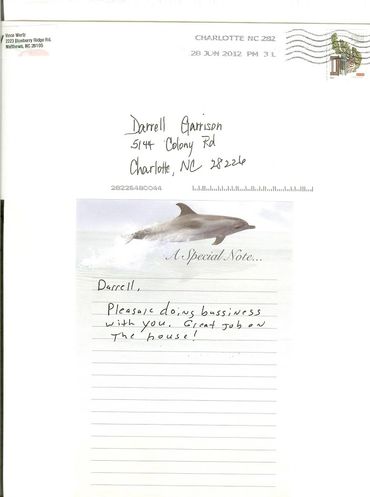 Vince Wertz
2223 Blueberry Ridge Rd.
Matthews, NC 28105
CHARLOTTE NC 282
28 JUN 2012 PM 3 L
Darrell Garrison
5144 Colony Rd
Charlotte, NC 28226
28226480044
A Special Note...
Darrell,
Pleasaic doing bussiness
with you. Great job on
The house!